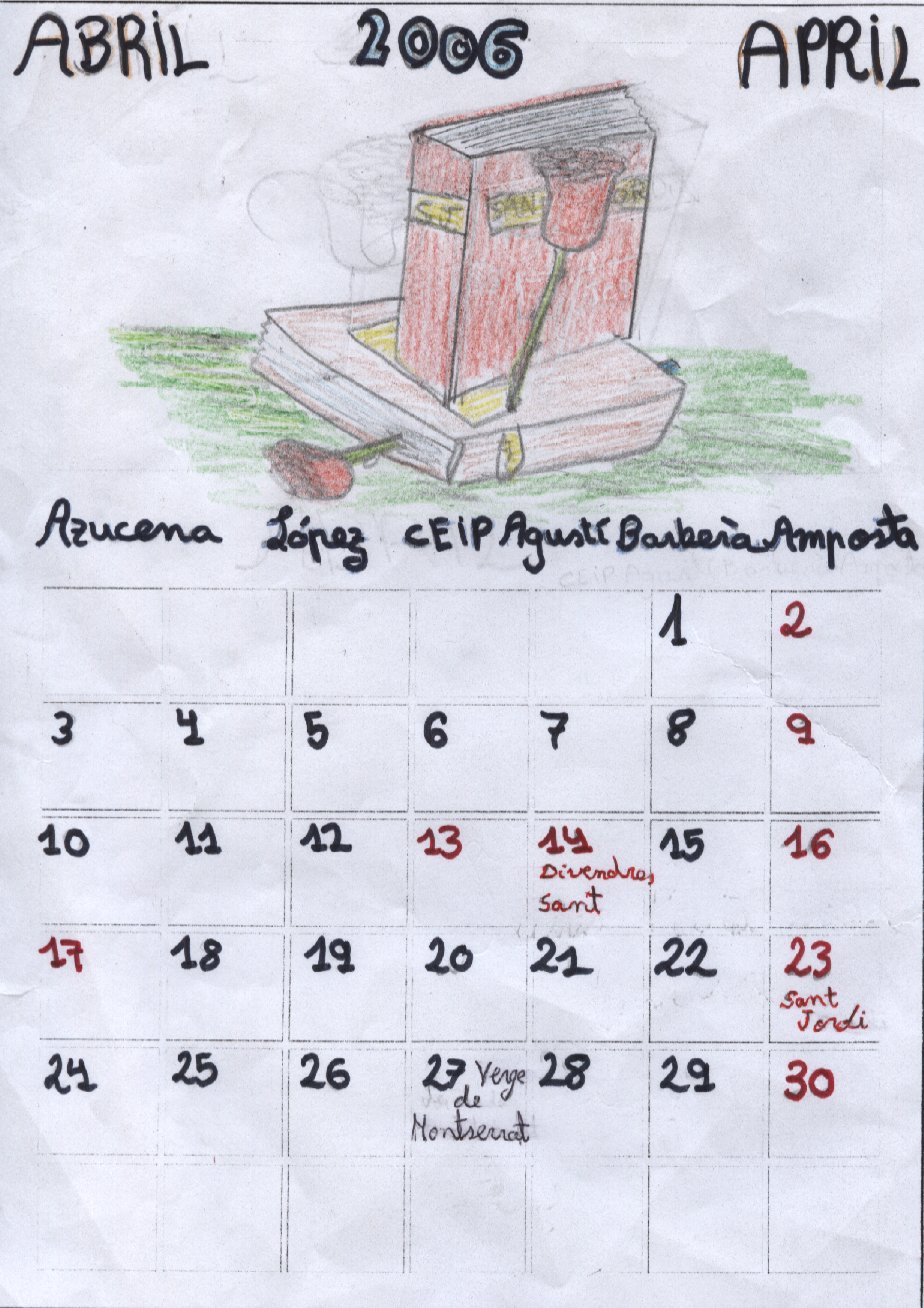 ABRIL 2006 APRIL
S.J. SAN
Azucena López CEIP Agustí Barberà Amposta
1 2
3 4 5 6 7 8 9
10 11 12 13 14 15 16
Divendres
Sant
17 18 19 20 21 22 23
Sant
Jordi
24 25 26 27 Verge 28 29 30
de
Montserrat